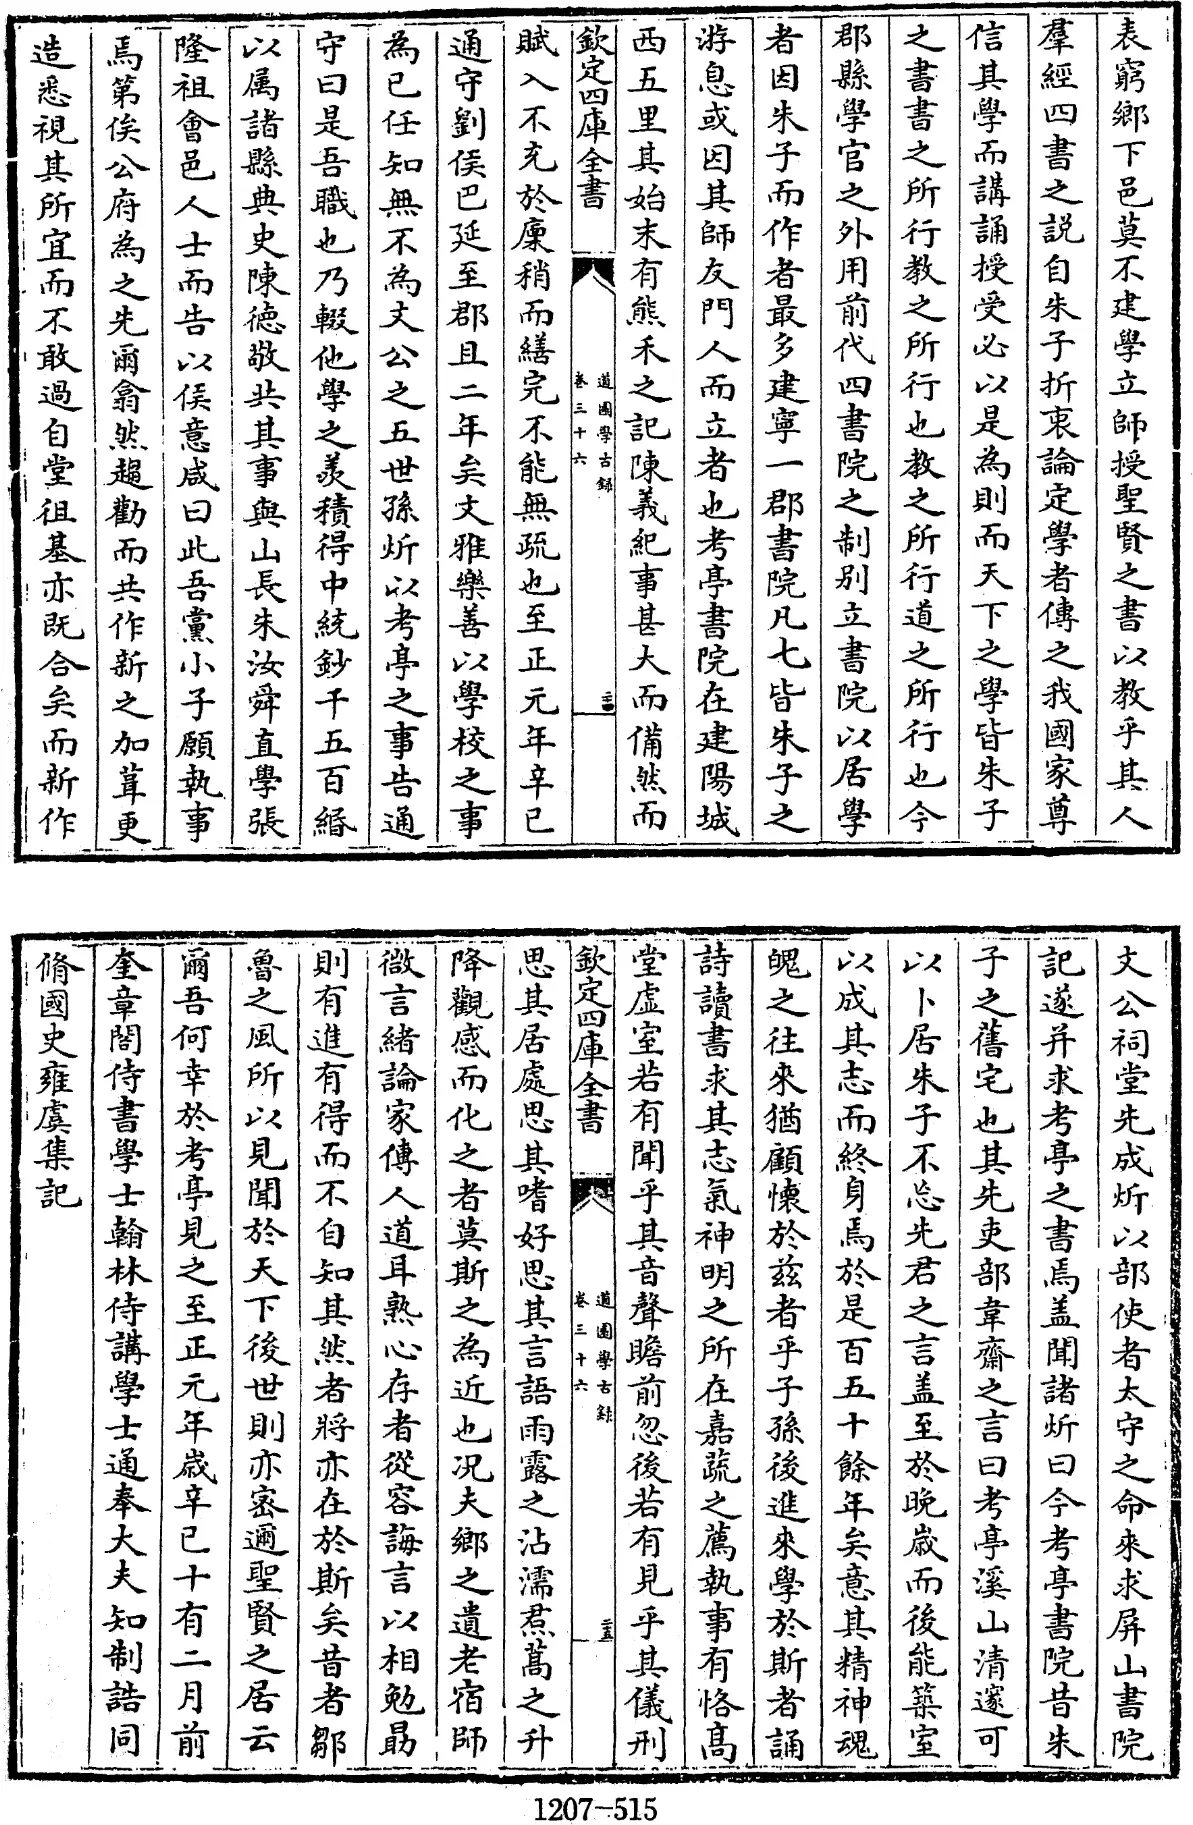 表窮鄉下邑莫不建學立師授聖賢之書以教乎其人
羣經四書之説自朱子折衷論定學者傳之我國家尊
信其學而講誦授受必以是為則而天下之學皆朱子
之書書之所行教之所行也教之所行道之所行也今
郡縣學官之外用前代四書院之制别立書院以居學
者因朱子而作者最多建寧一郡書院凡七皆朱子之
游息或因其師友門人而立者也考亭書院在建陽城
西五里其始末有熊禾之記陳義紀事甚大而備然而
欽定四庫全書
道園學古録
卷三十六
二十四
賦入不充於廩稍而繕完不能無疏也至正元年辛巳
通守劉侯巴延至郡且二年矣文雅樂善以學校之事
為已任知無不為文公之五世孫炘以考亭之事告通
守曰是吾職也乃輟他學之羨積得中統鈔千五百緡
以属諸縣典史陳德敬共其事與山長朱汝舜直學張
隆祖會邑人士而告以侯意咸曰此吾黨小子願執事
焉第俟公府為之先爾翕然趨勸而共作新之加葺更
造悉視其所宜而不敢過自堂徂基亦既合矣而新作
文公祠堂先成炘以部使者太守之命來求屏山書院
記遂并求考亭之書焉盖聞諸炘曰今考亭書院昔朱
子之舊宅也其先吏部韋齋之言曰考亭溪山清邃可
以卜居朱子不忘先君之言盖至於晚歲而後能築室
以成其志而終身焉於是百五十餘年矣意其精神魂
魄之往來猶顧懷於兹者乎子孫後進來學於斯者誦
詩讀書求其志氣神明之所在嘉蔬之薦執事有恪髙
堂虚室若有聞乎其音聲瞻前忽後若有見乎其儀刑
欽定四庫全書
道園學古録
卷三十六
二十五
思其居處思其嗜好思其言語雨露之沾濡焄蒿之升
降觀感而化之者莫斯之為近也况夫鄉之遺老宿師
微言緒論家傳人道耳熟心存者從容誨言以相勉勗
則有進有得而不自知其然者將亦在於斯矣昔者鄒
魯之風所以見聞於天下後世則亦宻邇聖賢之居云
爾吾何幸於考亭見之至正元年歳辛巳十有二月前
奎章閣侍書學士翰林侍講學士通奉大夫知制誥同
脩國史雍虞集記
1207-515